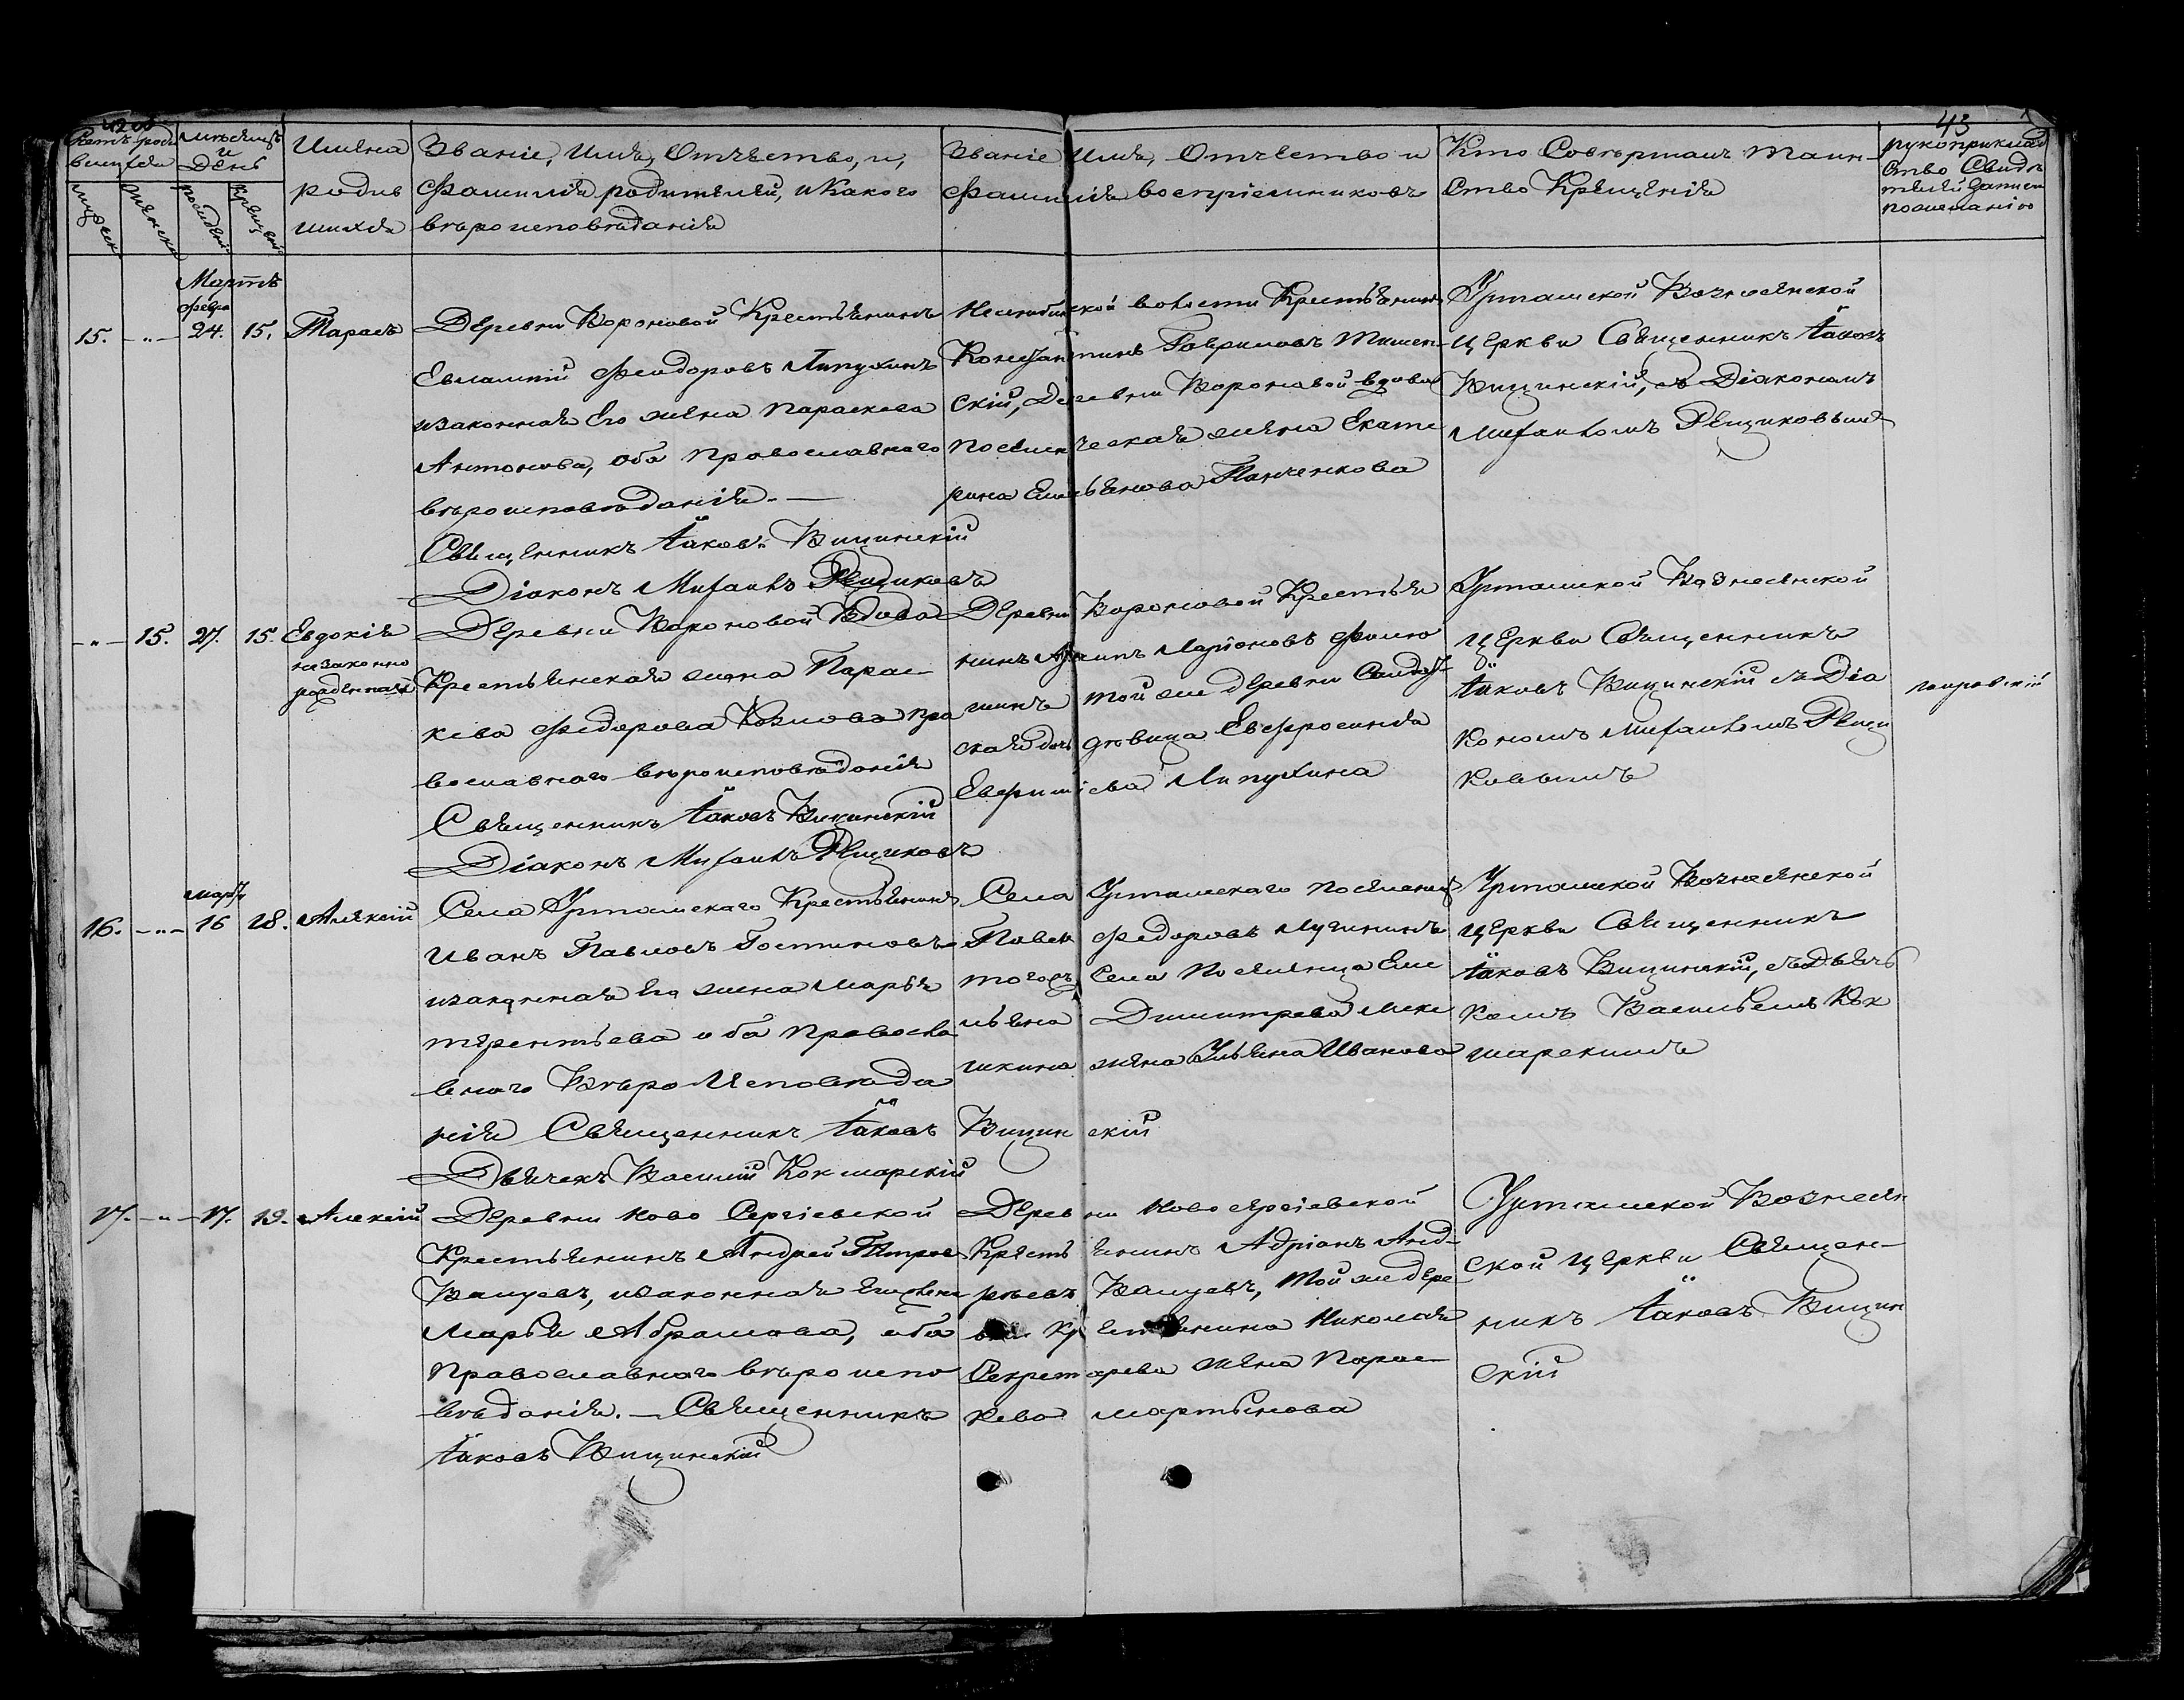 43
Счетъ роди
вшихся
мужеска
женска
Мѣсяцъ
и
День
рожденія
крещенія
Имена
родив
шихся
Званіе, Имя, Отчество, и,
Фамилія родителей, и Какого
вѣроисповѣданія
Званіе Имя, Отчество и
Фамилія воспріемниковъ
Кто Совершалъ Таин-
Ство Крещенія
рукоприклад
ство Свидѣ
телей записи
по желанію
Мартъ
февра
15. -"- 24. 15. Тарасъ
Деревни Вороновой Крестьянинъ
Евлампій Феодоровъ Липухинъ
изаконная Его жена Параскева
Антонова, оба Православнаго
вѣроисповѣданія. —
Священникъ Іаковъ Вицинскій
Діаконъ Михаилъ Рещиковъ
волости Крестьянинъ
Константинъ Гавриловъ Тишен-
скій, Деревни Вороновой вдова
Поселенческая жена Екате
рина Емельянова Панченкова
Урташской Вознесенской
церкви Священникъ Іаковъ
Вицинскій, съ Діакономъ
Михаиломъ Рещиковымъ
-"- 15. 27. 15. Евдокія
незаконно
рожденная
Деревни Вороновой Вдова
Крестьянская жена Парас-
кева Федорова Козлова пра
вославнаго вѣроисповѣданія
Священникъ Іаковъ Вицинскій
Діаконъ Михаилъ Рещиковъ
Деревни Вороновой Крестья
нинъ Ларіоновъ Филю
шинъ той же деревни Солдат
ская дочь дѣвица Евфросинія
Евфиміева Липухина
Урташской Вознесенской
церкви Священникъ
Іаковъ Вицинскій съ Діа
кономъ Михаиломъ Рещи
ковымъ
Март
16. -"- 16 18. Алексій
Села Урташскаго Крестьянинъ
Иванъ Павловъ Гостиновъ
изаконная Его жена Марья
терентьева оба Правосла
внаго Вѣро Исповѣда
нія Священникъ Іаковъ Вицинскій
Дьячекъ Василій Кокшарскій
Села Урташскаго поселенецъ
Павелъ Федоровъ Лучининъ
того жъ Села Поселенца Еме
льяна Дмитрева Мики
шкина жена Ульяна Иванова
Урташской Вознесенской
церкви Священникъ
Іаковъ Вицинскій, съ Дьяч
комъ Васильемъ Кок
шарскимъ
17. -"- 17. 19. Алексій
Деревни Ново Сергіевской
Крестьянинъ Андрей Петровъ
Ванцевъ, изаконная Его жена
Марья Абрамова, оба
Православнаго вѣроиспо
вѣданія. — Священникъ
Іаковъ Вицинскій
Деревни Новосергіевской
Крестьянинъ Адріанъ Анд-
реевъ Ванцевъ, той же дере
вни Крестьянина Николая
Секретарева жена Парас-
кева мартынова
Урташской Вознесен
ской церкви Священ-
никъ Іаковъ Вицин
скій